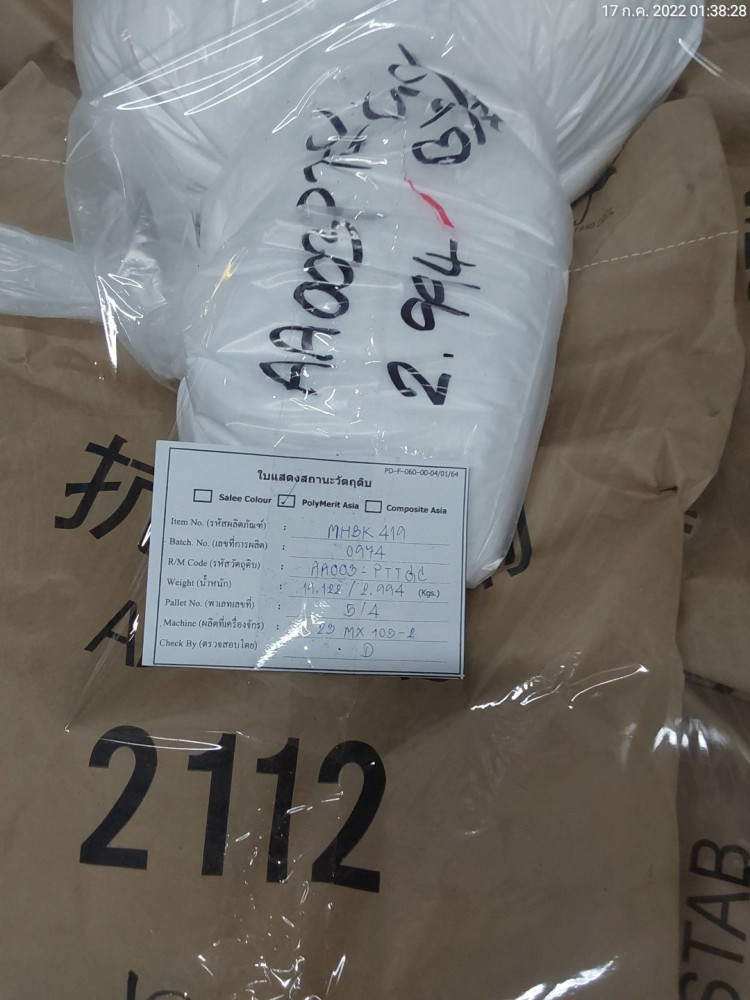 17 ก.ค. 2022 01:38:28
AA003
2.994
PD-F-060-00-04/01/64
ใบแสดงสถานะวัตถุดิบ
Salee Colour ✓ PolyMerit Asia Composite Asia
Item No. (รหัสผลิตภัณฑ์) : MHBK 419
Batch. No. (เลขที่การผลิต) : 0974
R/M Code (รหัสวัตถุดิบ) : AA003-PTTGC
Weight (น้ำหนัก) : 14.122 / 2.994 (Kgs.)
Pallet No. (พาเลทเลขที่) : 5/4
Machine (ผลิตที่เครื่องจักร) : 23 MX 105-2
Check By (ตรวจสอบโดย) : D
抗
A
2112
STAB